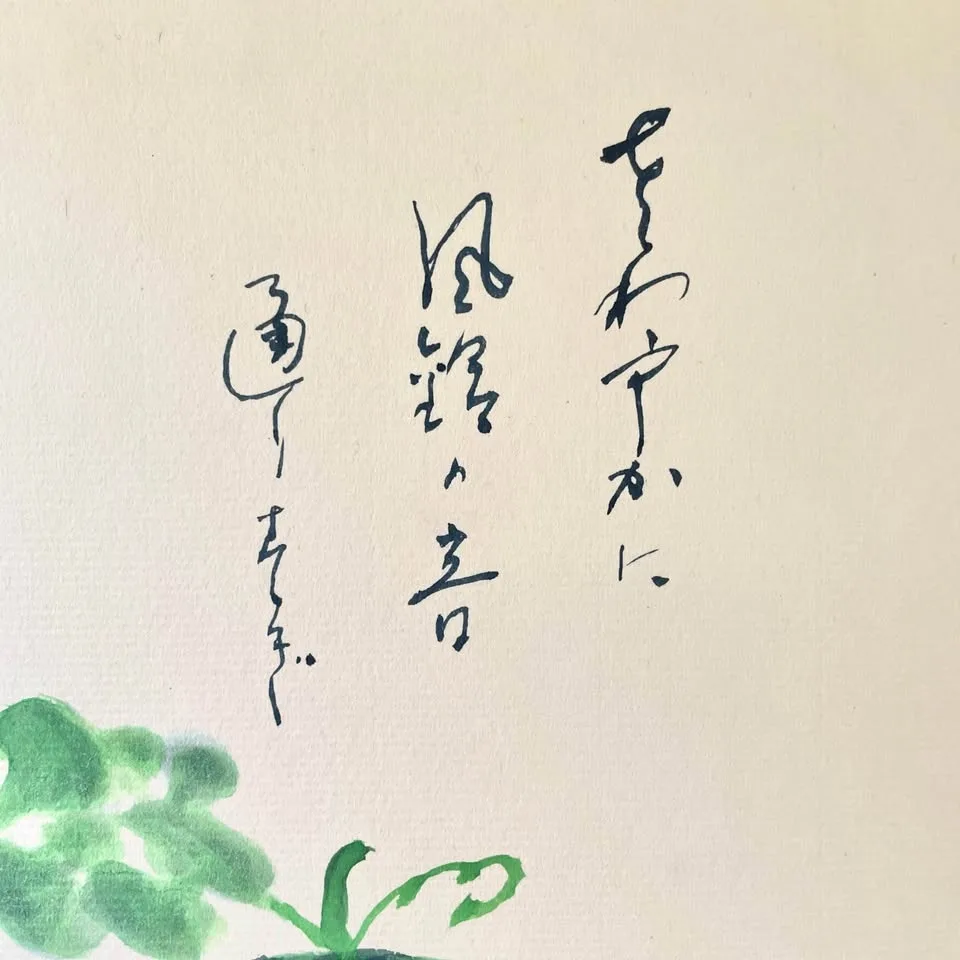 さわやかに
風鈴の音
通りすぎし